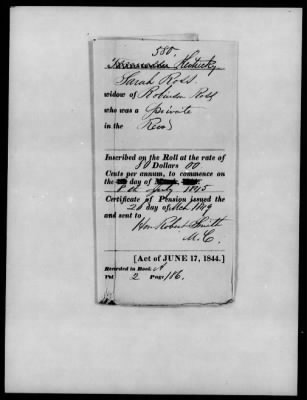 580.
Kentucky
Sarah Ross
widow of Robinson Ross
who was a Private
in the Rev
Inscribed on the Roll at the rate of
80 Dollars 00
Cents per annum, to commence on
the day of
July 1845
Certificate of Pension issued the
20 day of Mch 1849
and sent to
Hon Robert Smith
M. C.
[Act of JUNE 17, 1844.]
Recorded in Book A
Vol 2 Page 116.